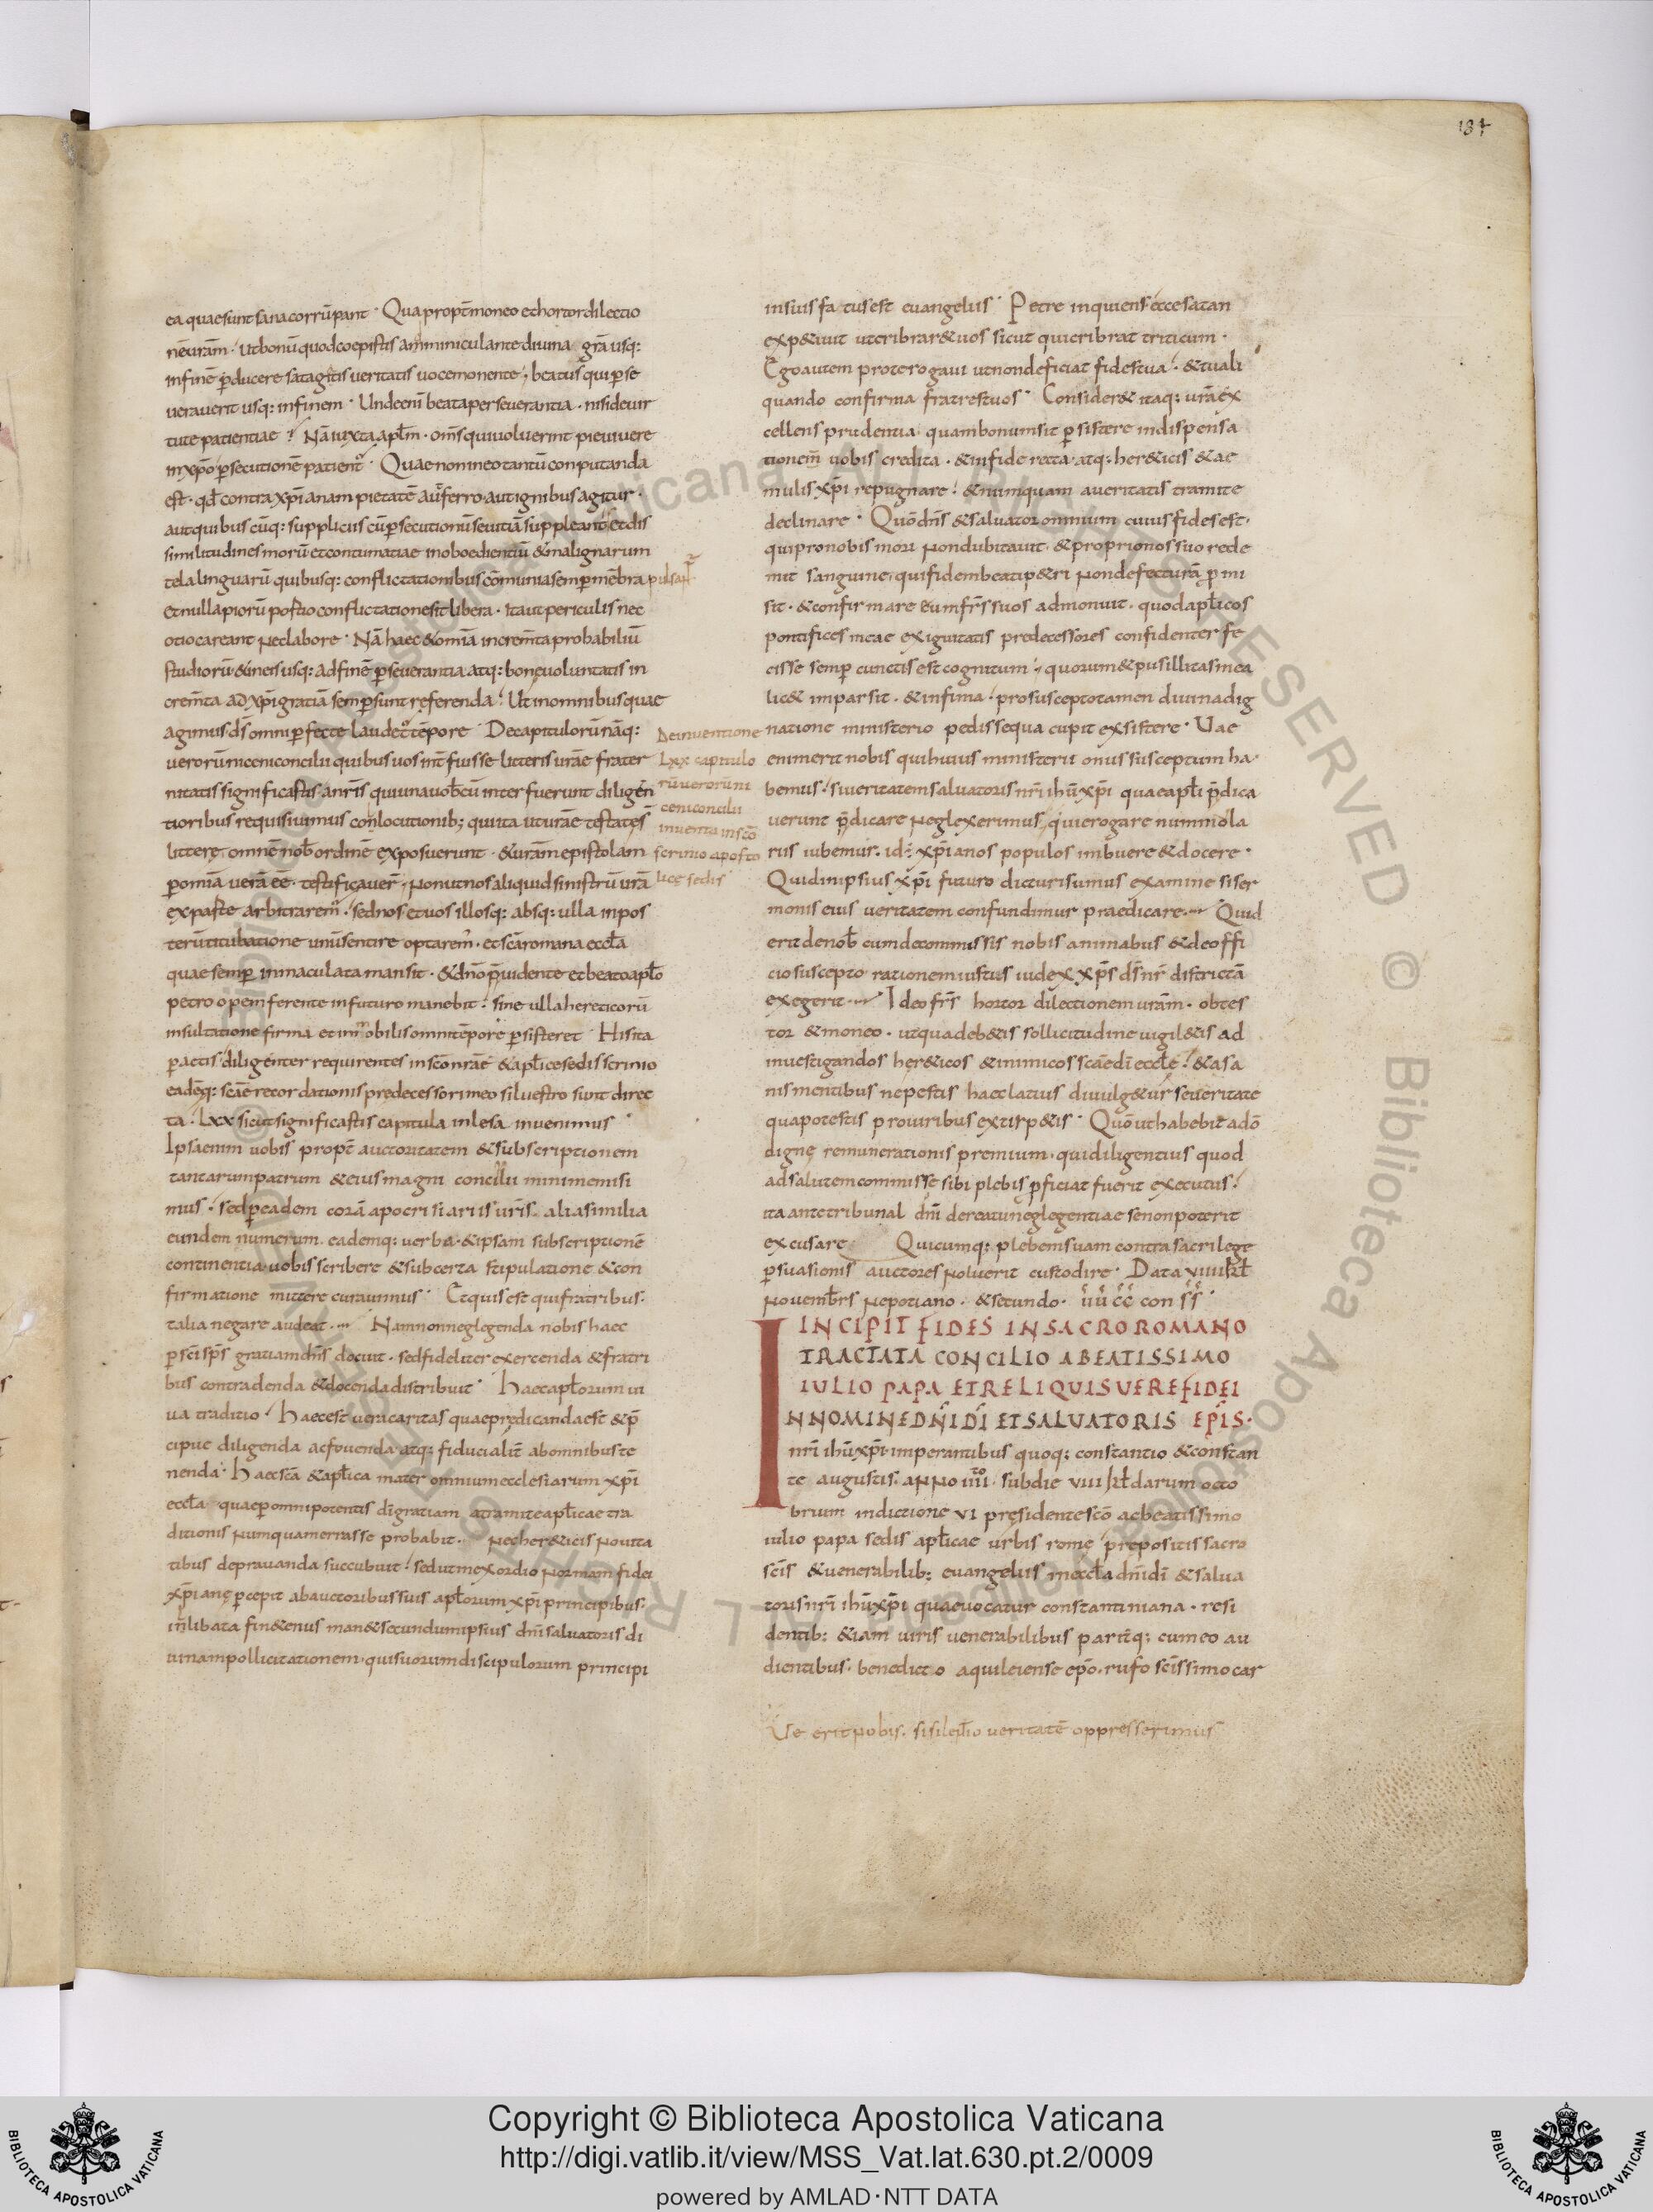 187
ea quae sunt sana corrūpant · Quapropt̄ moneo et hortor dilectio
nē urām · ut bonū quod coepistis amminiculante diuina grā usq:
in finē p̄ducere satagatis ueritatis uoce monente; beatus qui p̄se
uerauerit usq: in finem · Unde enī beata perseuerantia · nisi de uir
tute patientiae? Nā iuxta apl̄m · om̄s qui uoluerint pie uiuere
in xp̄o p̄secutionē patient᷑ · Quae non in eo tantū conputanda
est · qd̄ contra xp̄ianam pietatē aut᷑ ferro aut ignibus agitur ·
aut quibuscūq: suppliciis cū p̄secutionū seuitiā suppleant et dis
similitudines morū et contumatiae inoboedientiū & malignarum
tela linguarū quibusq: conflictationibus cōmunia semp̄ mēbra pulsant᷑
et nulla piorū postio conflictatione sit libera · ita ut periculis nec
otio careant nec labore · Nā haec & omīa increm̄ta probabiliū
studiorū & in eis usq: ad finē p̄seuerantia atq: bonę uoluntatis in
crem̄ta ad xp̄i gratiā semp̄ sunt referenda? Ut in omnibus quae
agimus ds̄ omni p̄fecte laudet᷑ tēpore · De capitulorū nāq:
uerorū niceni concilii quibus uos int̄fuisse litteris urāe frater
nitatis significastis a nr̄is qui una uob̄cū interfuerunt diligen
tioribus requisiuimus conlocutionib; qui ita ut urāe testates̄
litterę omnē nob̄ ordinē exposuerunt · & urām epistolam
p̄ omīa uerā eē testificauer̄; non ut nos aliquid sinistrū urā
ex parte arbitrarem᷑ · sed nos et uos illosq: absq: ulla in pos
terū titubatione unū sentire optarem᷑ · et scā romana eccl̄a
quae semp̄ inmaculata mansit · & dn̄o p̄uidente et beato apl̄o
petro opem ferente in futuro manebit? sine ulla hereticorū
insultatione firma et inmobilis omni tēpore p̄sisteret · His ita
p̄actis diligenter requirentes in scō nrāe & aplice sedis scrinio
eadēq: scāe recordationis predecessori meo siluestro sunt direc
ta · Lxx sicut significastis capitula inlesa inuenimus ·
Ipsa enim uobis propt̄ auctoritatem & subscriptionem
tantarum patrum & eius magni concilii minime misi
mus · sed p̄ eadem corā apocrisiariis ur̄is alia similia
eundem numerum eademq: uerba & ipsam subscriptionē
continentia uobis scribere & sub certa stipulatione & con
firmatione mittere curauimus · Et quis est qui fratribus
talia negare audeat · Nam non neglegenda nobis haec
p̄ scīsp̄s gratiam dn̄s docuit · sed fideliter exercenda & fratri
bus contradenda & docenda distribuit · Haec apl̄orum ui
ua traditio? Haec est uera caritas quae predicanda est & p̄
cipue diligenda ac fouenda atq: fiducialit̄ ab omnibus te
nenda · Haec scā & apl̄ica mater omnium ecclesiarum xp̄i
eccl̄a quae p̄ omnipotentis dī gratiam a tramite apl̄icae tra
ditionis numquam errasse probabit · nec her&icis nouita
tibus deprauanda succubuit? sed ut in exordio normam fidei
xp̄ianę p̄cepit ab auctoribus suis apl̄orum xp̄i principibus
inlibata fin&enus man& secundum ipsius dn̄i saluatoris di
uinam pollicitationem · qui suorum discipulorum principi
De inuentione
Lxx capitulo
rū uerorū ni
ceni concilii
inuenta in scō
scrinio aposto
licę sedis
in suis fatus est euangeliis · Petre inquiens ecce satan
exp&iuit ut cribrar& uos sicut qui cribrat triticum ·
Ego autem pro te rogaui ut non deficiat fides tua? & tu ali
quando confirma fratres tuos · Consider& itaq: urā ex
cellens prudentia quam bonum sit p̄sistere in dispensa
tionem̄ uobis credita · & in fide recta atq: her&icis & ae
mulis xp̄i repugnare? & numquam a ueritatis tramite
declinare · Quō dn̄s & saluator omnium cuius fides est ·
qui pro nobis mori non dubitauit · & proprio nos suo rede
mit sanguine, qui fidem beati p&ri non defecturā p̄mi
sit · & confirmare eum fr̄s suos admonuit · quod apl̄icos
pontifices meae exiguitatis predecessores confidenter fe
cisse semp̄ cunctis est cognitum; quorum & pusillitas mea
lic& impar sit · & infima? pro suscepto tamen diuina dig
natione ministerio pedissequa cupit exsistere · Uae
enim erit nobis qui huius ministerii onus susceptum ha
bemus? si ueritatem saluatoris nr̄i ihū xp̄i quae apl̄i p̄dica
uerunt p̄dicare neglexerimus, qui erogare nummola
riis iubemus · id÷ xp̄ianos populos imbuere & docere ·
Quid in ipsius xp̄i futuro dicturi sumus examine si ser
monis eius ueritatem confundimur praedicare · Quid
erit de nob̄ cum de commissis nobis animabus & de offi
cio suscepto rationem iustus iudex xp̄s ds̄ nr̄ districtā
exegerit · Ideo fr̄s hortor dilectionem urām · obtes
tor & moneo · ut qua deb&is sollicitudine uigil&is ad
inuestigandos her&icos & inimicos scāe dī eccl̄e? & a sa
nis mentibus ne pestis haec latius diuulg&ur seueritate
qua potestis pro uiribus extirp&is · Quō ut habebit a dō
dignę remunerationis premium · qui diligentius quod
ad salutem commisse sibi plebis p̄ficiat fuerit executus?
ita ante tribunal dn̄i de reatu neglegentiae se non poterit
excusare · Quicumq: plebem suam contra sacrilege
p̄suasionis auctores noluerit custodire · Data viiii kl̄
nouemb̄rs nepotiano · & secundo · ūū c̄c̄ con s̄s̄ ·
INCIPIT FIDES IN SACRO ROMANO
TRACTATA CONCILIO A BEATISSIMO
IULIO PAPA ET RELIQUIS UERE FIDEI
INNOMINE DN̄I DĪ ET SALUATORIS EP̄IS ·
nr̄i ihū xp̄i imperantibus quoq: constantio & constan
te augustis · anno iiiito · sub die viii kl̄darum octo
brium indictione vi pręsidente scō ac beatissimo
iulio papa sedis apl̄icae urbis romę prępositis sacro
scīs & uenerabilib: euangeliis in eccl̄a dn̄i dī & salua
toris nr̄i ihū xp̄i quae uocatur constantiniana · resi
dentib: &iam uiris uenerabilibus parit̄q; cum eo au
dientibus · benedicto aquileiense ep̄o · rufo scīssimo car
Ue erit nobis · si silentio ueritatē oppresserimus
© Biblioteca Apostolica Vaticana ALL RIGHTS RESERVED
Copyright © Biblioteca Apostolica Vaticana
http://digi.vatlib.it/view/MSS_Vat.lat.630.pt.2/0009
powered by AMLAD·NTT DATA
BIBLIOTECA APOSTOLICA VATICANA
BIBLIOTECA APOSTOLICA VATICANA